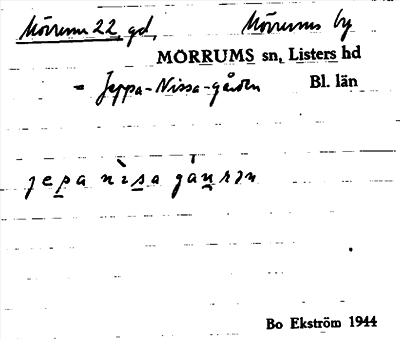 Mörrum 22 gd, Mörrums by
MÖRRUMS sn, Listers hd
= Jeppa-Nissa-gården Bl. län
jepa nìsa gánrən
Bo Ekström 1944